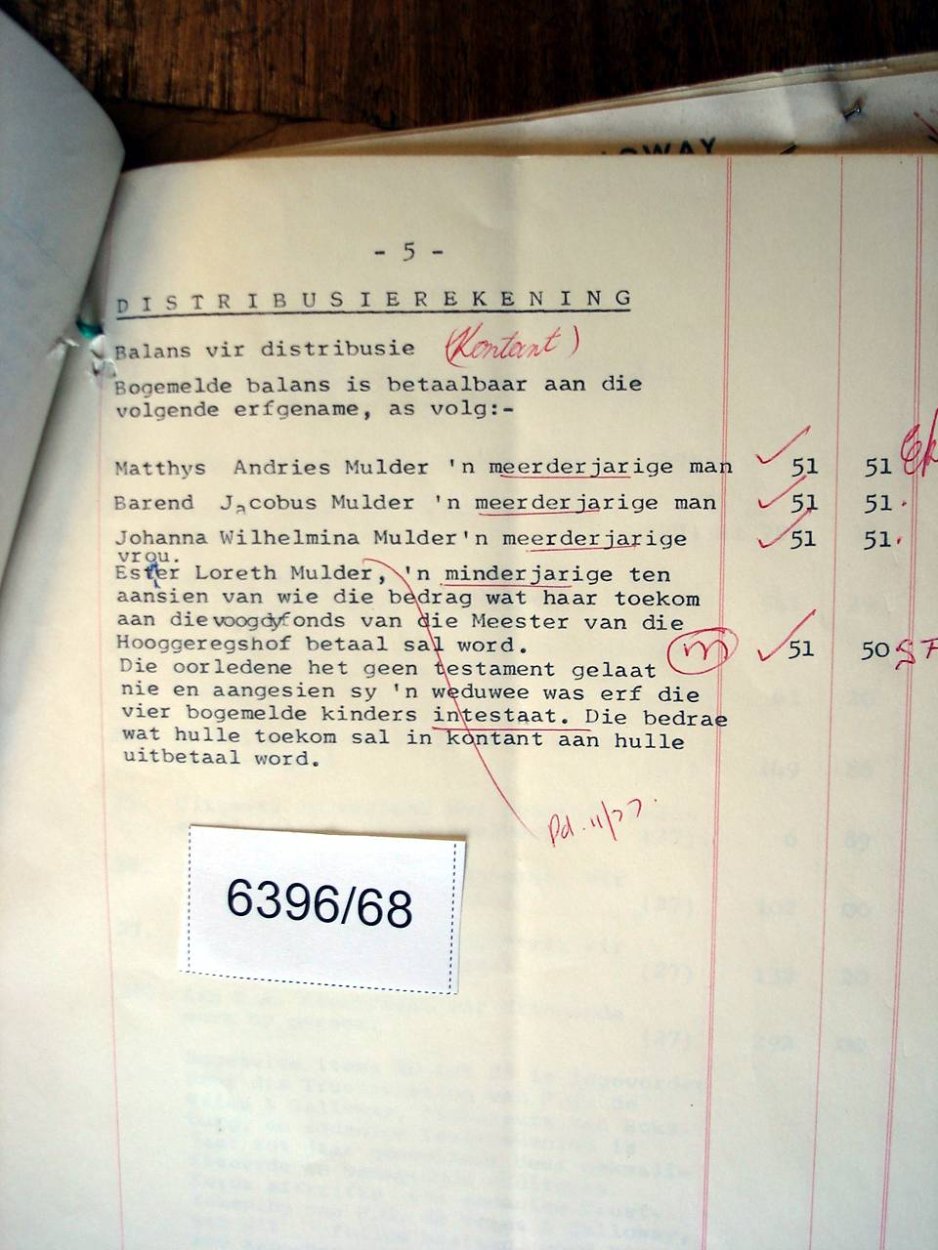 - 5 -
DISTRIBUSIEREKENING
Balans vir distribusie (Kontant)
Bogemelde balans is betaalbaar aan die
volgende erfgename, as volg:-
Matthys Andries Mulder 'n meerderjarige man 51 51
Barend Jacobus Mulder 'n meerderjarige man 51 51.
Johanna Wilhelmina Mulder'n meerderjarige 51 51.
vrou.
Ester Loreth Mulder, 'n minderjarige ten
aansien van wie die bedrag wat haar toekom
aan die voogdyfonds van die Meester van die
Hooggeregshof betaal sal word. m 51 50
Die oorledene het geen testament gelaat
nie en aangesien sy 'n weduwee was erf die
vier bogemelde kinders intestaat. Die bedrae
wat hulle toekom sal in kontant aan hulle
uitbetaal word.
Pd. 11/77.
6396/68